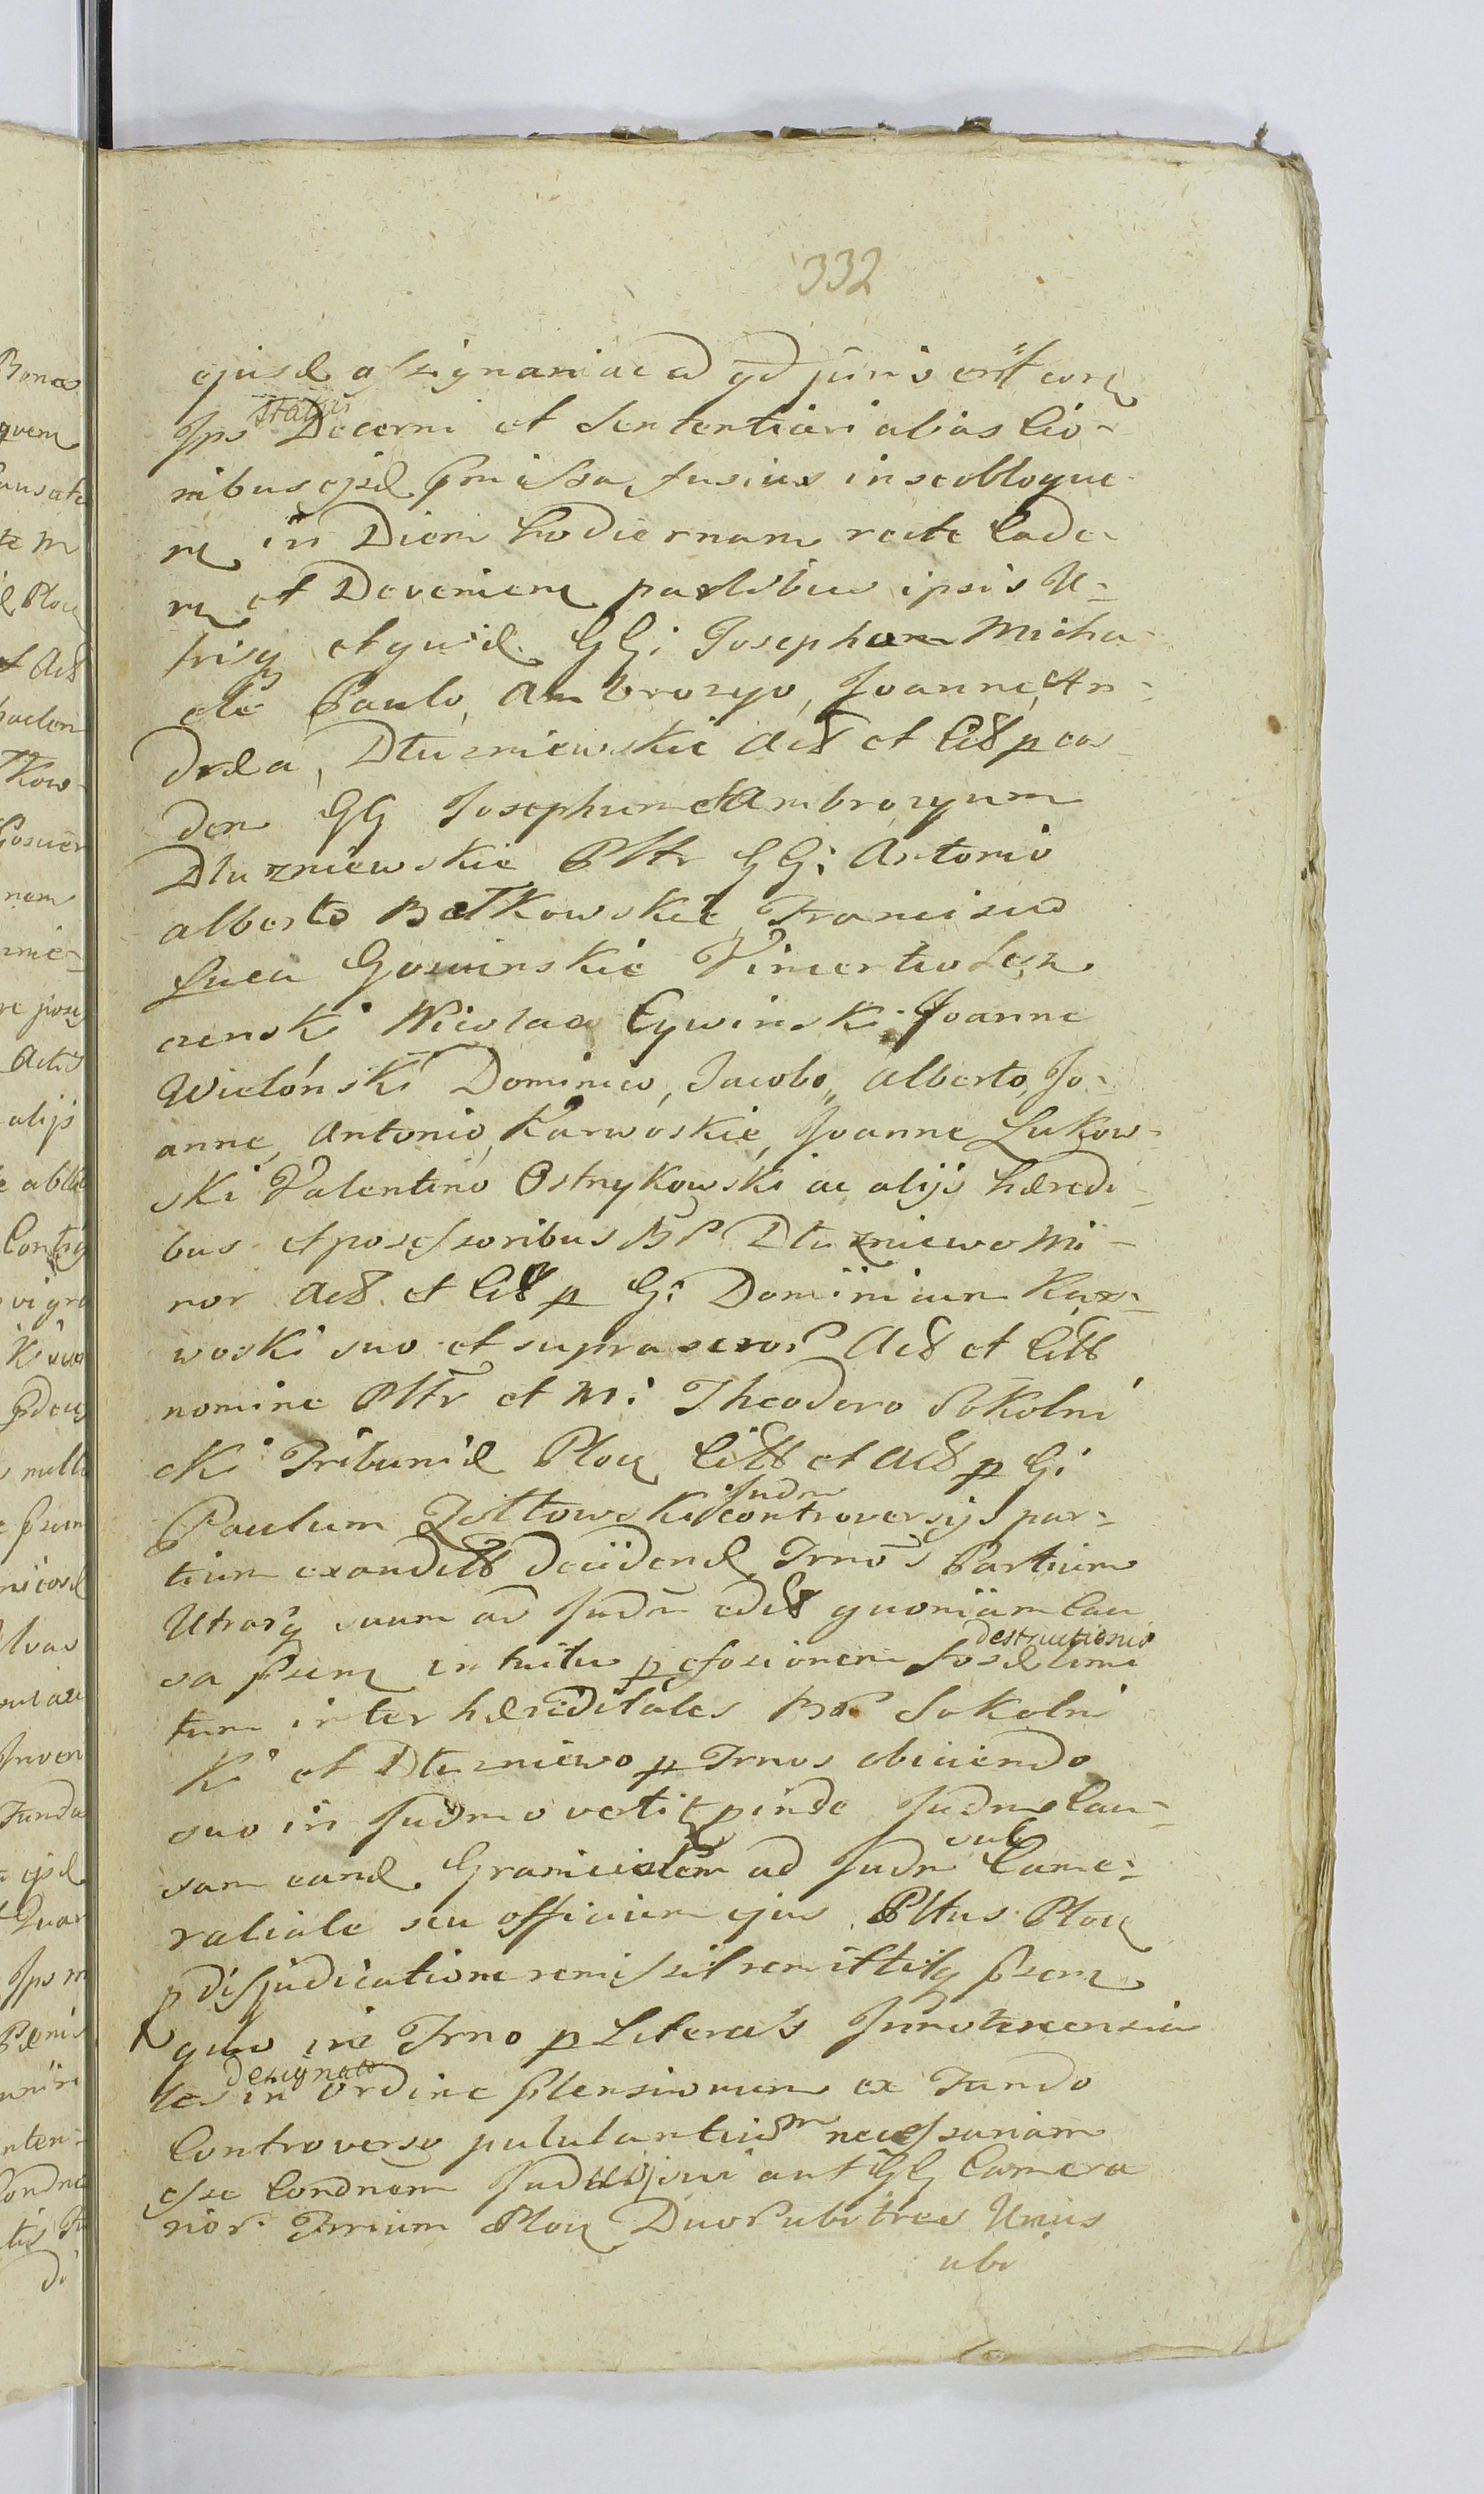 332
ejusd assignari ac ad qd juris erit cora
status
Ips Decerni et Sententiari alias Cio-
nibus ejsd pmissa fusius in se obloque
re in Diem hodiernam recte Cade-
re et Devenien partibus ipsis U-
trisq et quid GGi Josepho Micha-
ele Paulo, Ambrozyo, Joanne, An-
drea, Dłuzniewskie Act et Citt p eos
dem GG Josephum et Ambrozyum
Dłuzniewskie Pltr GGi Antonio
Alberto Betkowskie, Francisco
Luca Gowinskie Vincentio Lesz
czenski Nicolao Cywinski Joanne
Wielónski Dominico, Jacobo, Alberto, Jo-
anne, Antonio, Karwoskie, Joanne Lukow-
ski Valentino Ostrykowski ac alijs hæredi-
bus et possessoribus BP Dłuzniewo Mi-
nor Act et Citt p G: Dominicum Kar-
woski suo et suprascror Act et Citt
nomine Pltr et M: Theodoro Sokolni
cki Tribunid Ploc Citt et Act p G:
Judm
Paulum Zołtowski controversijs par-
tium exaudtt decidend Trnos Partium
Utrarq suum ad Judm edtt quoniam Cau
destructionis
sa psem intuitu p efosionem fosæ limi
tum inter hæreditates BP Sokolni
Ki et Dłuzniewo p Trnos obiciendo
suo in Judmo vertitr pinde Judm Cau-
sub
sam eand Granicialem ad Judm Came-
raliale seu officium ejus Pltus Ploc
p disjudicatione remissit remittitq psem
quo in Trno p Literas Innotescentia
designato
les in Ordine ptensionum ex Fundo
Controverso pululantium necessariam
esse Condnem Judicij sui aut GG Camera
rior Trrium Ploc Duos ubi tres Unus
ubi